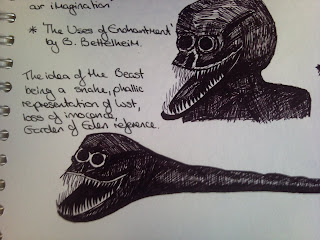 or imagination
* 'The Uses of Enchantment'
by B. Bettelheim.
The idea of the Beast
being a snake, phallic
representation of lust,
loss of innocence,
Garden of Eden reference.